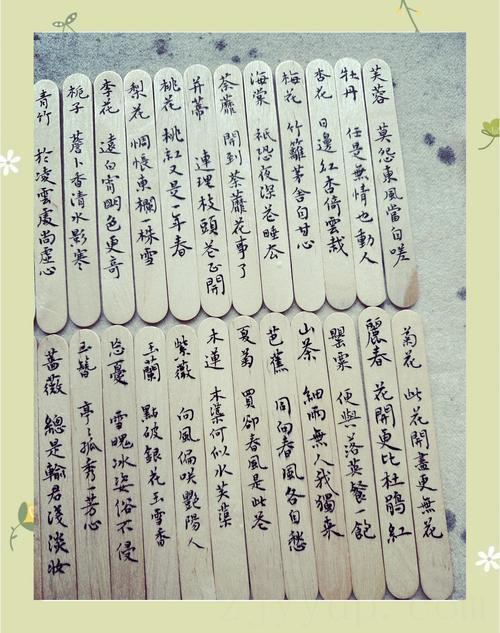 芙蓉 莫怨東風當自嗟
牡丹 任是無情也動人
杏花 日邊紅杏倚雲栽
梅花 竹籬茅舍自甘心
海棠 祇恐夜深花睡去
荼蘼 開到荼蘼花事了
并蒂 連理枝頭花正開
桃花 桃紅又是一年春
梨花 惆悵東欄一株雪
李花 遠白宵明色更奇
栀子 薝卜香清水影寒
青竹 於凌雲處尚虛心
菊花 此花開盡更無花
麗春 花開更比杜鵑紅
罌粟 便與落英餐一飽
山茶 細雨無人我獨來
芭蕉 同向春風各自愁
夏菊 買卻春風是此花
木蓮 木蕖何似水芙蕖
紫薇 向風偏咲艷陽人
玉蘭 點破銀花玉雪香
忘憂 雪魄冰姿俗不侵
玉簪 亭々孤秀一芳心
薔薇 總是輸君淺淡妝